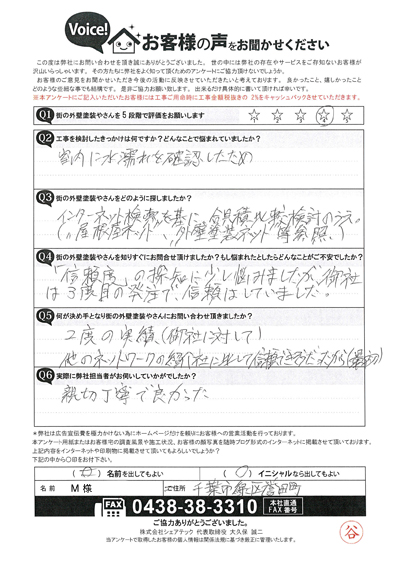 Voice!
お客様の声をお聞かせください
この度は弊社にお問い合わせを頂き誠にありがとうございました。世の中には弊社の存在やサービスをご存知ないお客様が
沢山いらっしゃいます。その方たちに弊社をよく知って頂くためのアンケートにご協力頂けないでしょうか。
お客様のご意見をお聞かせいただき今後の活動に反映させていただきたいと考えております。良かったこと、嬉しかったこと
どのような些細な事でも結構です。是非ご協力お願い致します。出来るだけ具体的に書いて頂ければ幸いです。
※本アンケートにご記入いただいたお客様には工事ご用命時に工事金額税抜きの 2%をキャッシュバックさせていただきます。
Q1 街の外壁塗装やさんを5段階で評価をお願いします ☆ ☆ ☆ ☆ ☆
Q2 工事を検討したきっかけは何ですか？どんなことで悩まれていましたか？
室内に水濡れを確認したため
Q3 街の外壁塗装やさんをどのように探しましたか？
インターネット検索を基に、合見積比較検討のうえ。
(〃屋根屋ネット〃、外壁塗装ネット等参照)
Q4 街の外壁塗装やさんを知りすぐにお問合せ頂けましたか？もし悩まれたとしたらどんなことがご不安でしたか？
「信頼度」の採点に少し悩みましたが、御社
は3度目の発注で、信頼はしていました。
Q5 何が決め手となり街の外壁塗装やさんにお問い合わせ頂きましたか？
2度の実績(御社に対して)
他のネットワークの紹介社に比して信頼できそうだったから(最初)
Q6 実際に弊社担当者がお伺いしていかがでしたか？
親切丁寧で良かった
※弊社は広告宣伝費を極力かけない為にホームページだけを頼りにお客様への営業活動を行っております。
本アンケート用紙またはお客様宅の調査風景や施工状況、お客様の顔写真を随時ブログ形式のインターネットに掲載させて頂いております。
上記内容をインターネットや印刷物に掲載させて頂いてもよろしいでしょうか？
下記の中から〇印をお付け下さい。
( ) 名前を出してもよい (〇) イニシャルなら出してもよい
名前 M様 ご住所 千葉市緑区誉田町
FAX 0438-38-3310 本社直通 FAX番号
ご協力ありがとうございました。
株式会社シェアテック 代表取締役 大久保 誠二
当アンケートで取得したお客様の個人情報は関係法規に基づき厳正に管理いたします。
谷